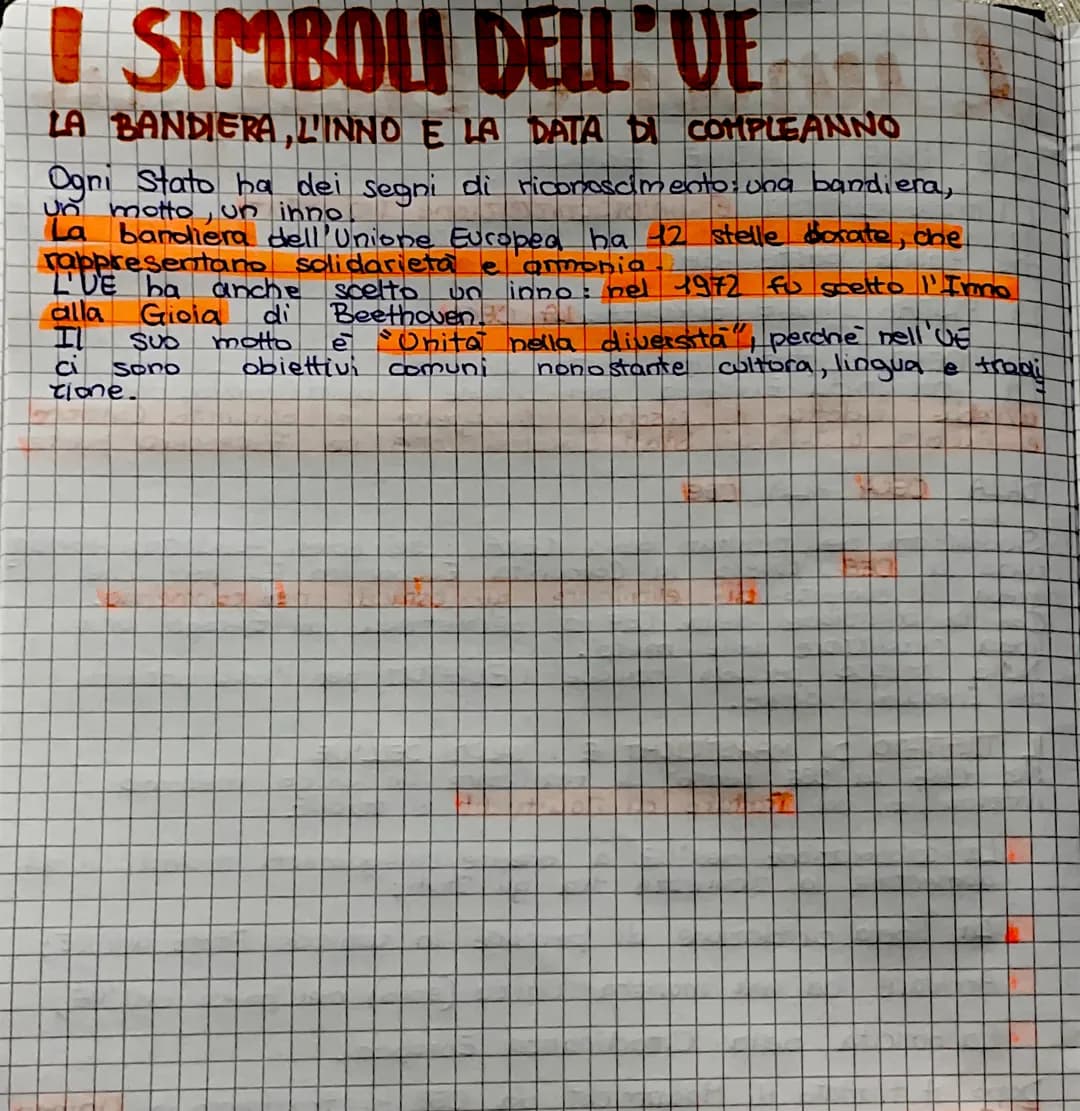 I SIMBOLI DELL'UE
LA BANDIERA, L'INNO E LA DATA DI COMPLEANNO
Ogni Stato ha dei segni di riconoscimento: una bandiera,
un motto, un inno.
La bandiera dell'Unione Europea ha 12 stelle dorate, che
rappresentano solidarietà e armonia.
L'UE ha anche scelto un inno: nel 1972 fu scelto l'Inno
alla Gioia di Beethoven.
Il suo motto è "Unità nella diversità", perchè nell'UE
ci sono obiettivi comuni nonostante cultura, lingua e tradi
zione.